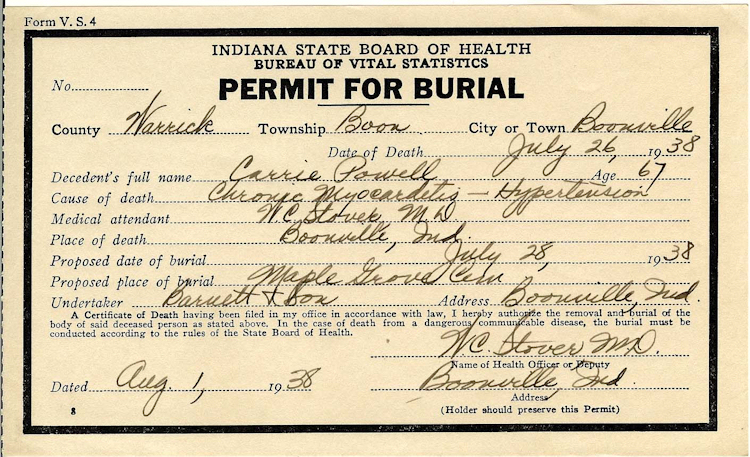 Form V. S. 4
INDIANA STATE BOARD OF HEALTH
BUREAU OF VITAL STATISTICS
PERMIT FOR BURIAL
No.
County Warrick Township Boon City or Town Boonville
Date of Death July 26, 1938
Decedent's full name Carrie Powell Age 67
Cause of death Chronic Myocardetis — Hypertension
Medical attendant W.C. Stover, M.D.
Place of death Boonville, Ind.
Proposed date of burial July 28, 1938
Proposed place of burial Maple Grove Cem
Undertaker Barnett & Son Address Boonville, Ind.
A Certificate of Death having been filed in my office in accordance with law, I hereby authorize the removal and burial of the
body of said deceased person as stated above. In the case of death from a dangerous communicable disease, the burial must be
conducted according to the rules of the State Board of Health.
W.C. Stover M.D.
Name of Health Officer or Deputy
Dated Aug. 1, 1938 Boonville, Ind.
Address
8 (Holder should preserve this Permit)